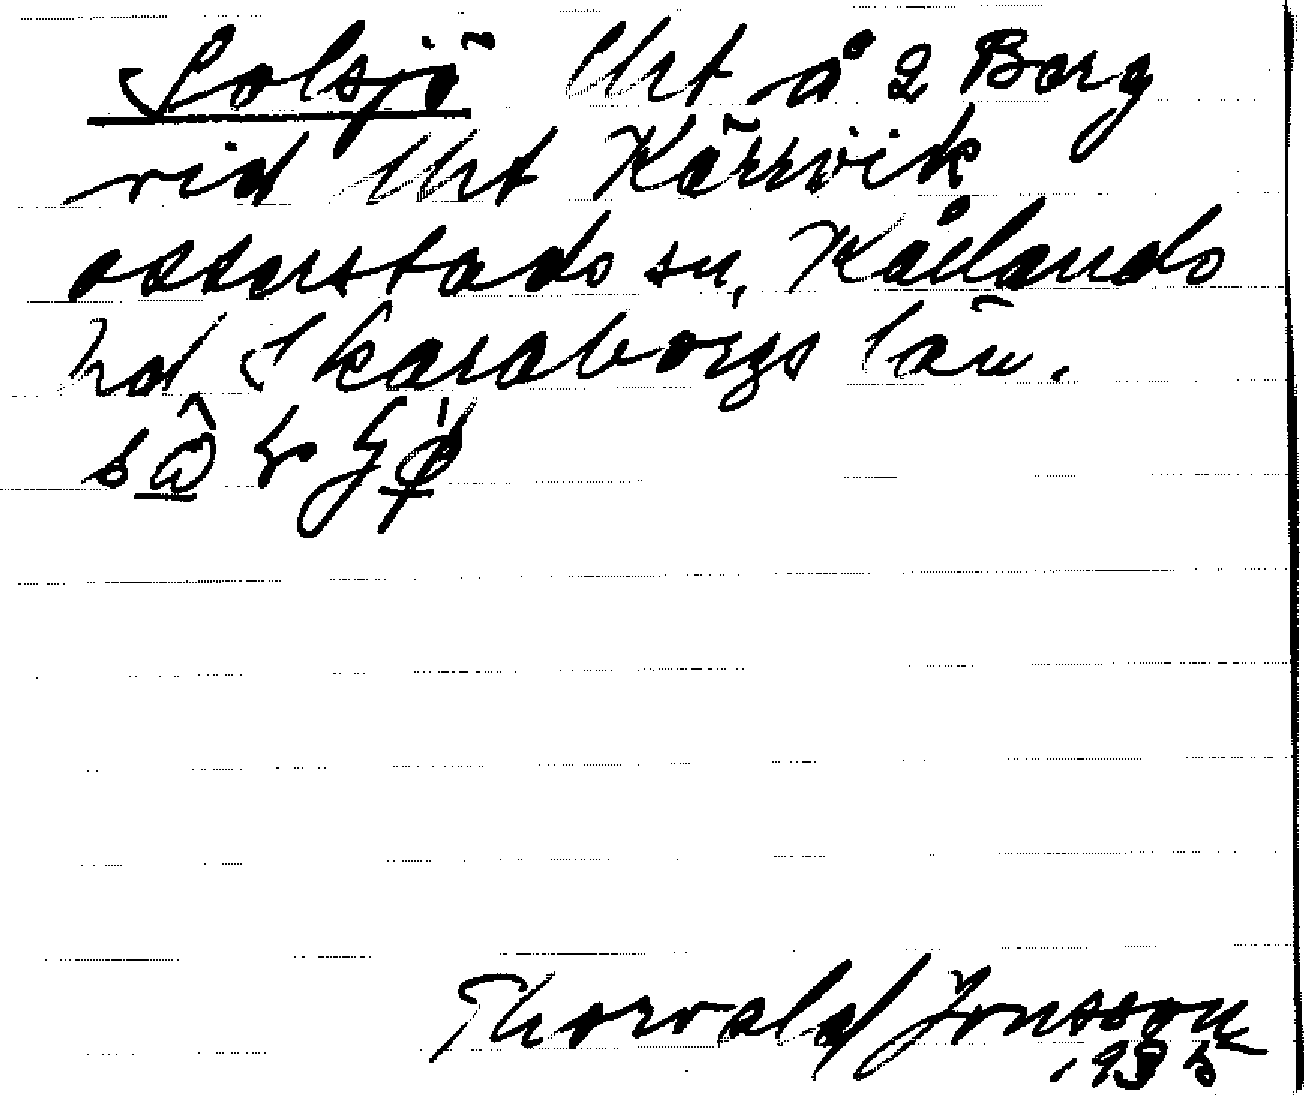 Solsjö lht å 2 Berg
vid lht Kärrvik
otterstads sn, Kållands
hd Skaraborgs län.
Thorvald Jonsson
1935